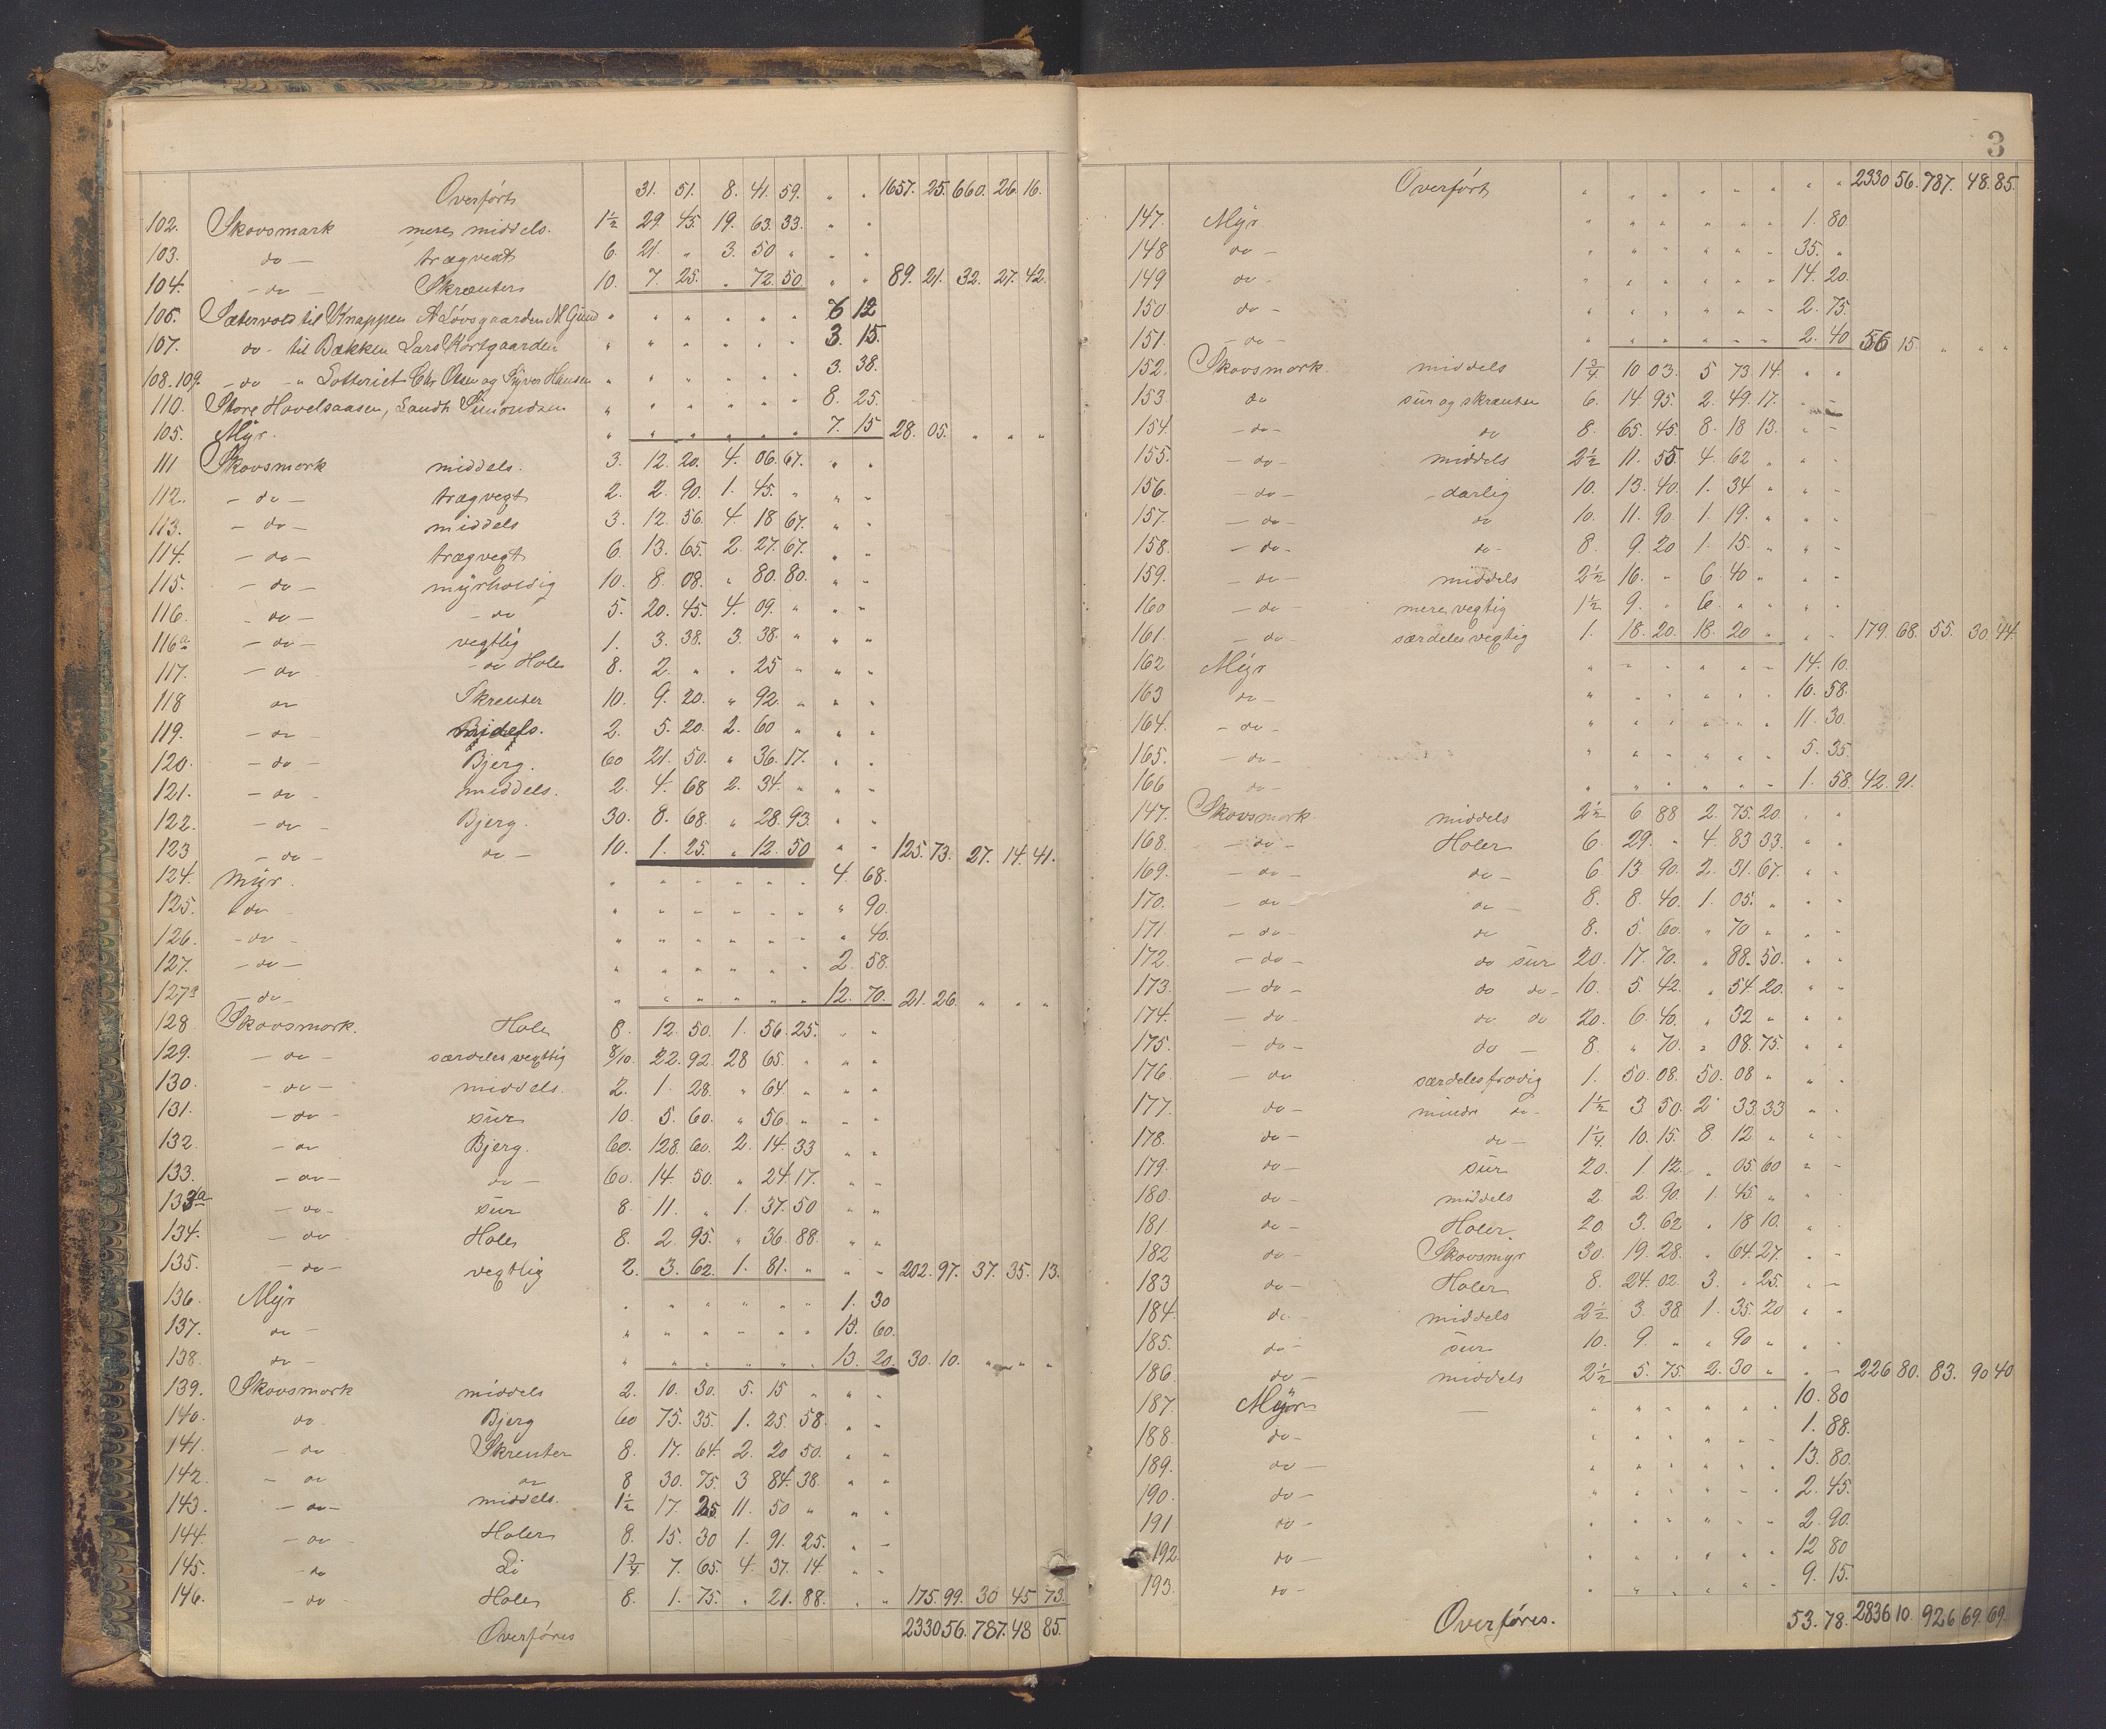 Overført 31. 51. 8. 41. 59. " " 1657. 25. 660. 26. 16.
102. Skovsmark meres middels. 1½ 29. 45. 19. 63. 33. " "
103. do — trægvext 6. 21. " 3. 50 " " "
104. - do - Skrænter 10. 7. 25. " 72. 50. " " 89. 21. 32. 27. 42.
106. Sætervold til Knappen A Løvsgaarden N. " " " " " " 6 12
107. do - til Bækken Lars Kortgaarden " " " " " " 3. 15.
108. 109. - do - " Lotteriet Chr Olsen og Syver Hansen " " " " " " 3. 38.
110. Store Havelsaasen, Simondsen " " " " " " 8. 25.
105. Myr. " " " " " " 7. 15 28. 05. " " "
111 Skovsmark middels. 3. 12. 20. 4. 06. 67. " "
112. - do - trægvegt 2. 2. 90. 1. 45. " " "
113. - do - middels 3. 12. 56. 4. 18 67. " "
114. - do - trægvegt 6. 13. 65. 2. 27. 67. " "
115. - do - myrholdig 10. 8. 08. " 80. 80. " "
116. do - - do 5. 20. 45. 4. 09. " " "
116a - do - vegtlig 1. 3. 38. 3. 38. " " "
117. - do - do Holer 8. 2. " " 25 " " "
118 do Skrenter 10. 9. 20. " 92. " " "
119. - do - Midels. 2. 5. 20. 2. 60 " " "
120. - do - Bjerg. 60 21. 50. " 36. 17. " "
121. - do - middels. 2. 4. 68 2. 34. " " "
122. - do - Bjerg. 30. 8. 68. " 28. 93. " "
123 - do - do - 10. 1. 25. " 12. 50 " " 125. 73. 27. 14. 41.
124. Myr. " " " " " " 4. 68.
125. do - " " " " " " " 90.
126. - do - " " " " " " " 40.
127. - do - " " " " " " 2. 58.
127a - do - " " " " " " 12. 70. 21. 26. " " "
128 Skovsmark. Holer 8. 12. 50. 1. 56. 25. " "
129. - do - særdeles vegtlig 8/10. 22. 92. 28 65. " " "
130. - do - middels. 2. 1. 28. " 64. " " "
131. - do - sur 10. 5. 60. " 56. " " "
132. - do Bjerg. 60. 128. 60. 2. 14. 33 " "
133. - do - do - 60. 14. 50. " 24. 17. " "
133a - do - sur 8. 11. " 1. 37. 50 " "
134. - do Holer 8. 2. 95. " 36. 88. " "
135. - do - vegtlig 2. 3. 62. 1. 81. " " " 202. 97. 37. 35. 13.
136. Myr " " " " " " 1. 30
137. do - " " " " " " 15. 60.
138. do - " " " " " " 13. 20. 30. 10. " " "
139. Skovsmark middels 2. 10. 30. 5. 15 " " "
140. do. Bjerg 60 75. 35. 1. 25. 58. " "
141. - do Skrenter 8. 17. 64. 2. 20 50. " "
142. - do do 8 30. 75. 3 84. 38. " "
143. - do - middels. 1½ 17. 25. 11. 50 " " "
144. - do Holer 8. 15. 30 1. 91. 25. " "
145. - do Li 1¾ 7. 65. 4. 37. 14 " "
146. - do Holer 8. 1. 75. " 21. 88. " " 175. 99. 30 45 73.
Overføres 2330 56. 787. 48 85.
3
Overført " " " " " " " 2330 56. 787. 48. 85.
147. Myr. " " " " " " 1. 80.
148 do - " " " " " " 35. "
149 do - " " " " " " 14. 20.
150 do - " " " " " " 2. 75.
151. - do - " " " " " " 2. 40 56 15. " " "
152. Skovsmark. middels 1¾ 10 03. 5 73 14. " "
153. do sur og skrænter 6. 14 95. 2. 49. 17. " "
154. - do - do 8. 65. 45. 8. 18 13. " "
155. - do - middels 2½ 11. 55. 4. 62 " " "
156. - do - dårlig 10. 13. 40. 1. 34 " " "
157. - do - do 10. 11. 90. 1. 19. " " "
158. - do - do - 8. 9. 20 1. 15. " " "
159. - do - middels 2½ 16. " 6. 40 " " "
160 - do - meres vegtig 1½ 9. " 6. " " " "
161. - do - særdeles vegtig 1. 18. 20. 18. 20 " " " 179. 68. 55. 30. 44.
162 Myr " " " " " " 14. 10.
163 do - " " " " " " 10. 58.
164. - do - " " " " " " 11. 30.
165. - do - " " " " " " 5. 35.
166 do - " " " " " " 1. 58. 42. 91.
147. Skovsmark middels 2½ 6 88 2. 75. 20. " "
168. - do - Holer 6. 29. " 4. 83 33. " "
169. - do - do - 6. 13. 90. 2. 31. 67. " "
170. - do - do - 8. 8. 40. 1. 05. " " "
171. - do - do 8. 5. 60. " 70 " " "
172. - do - do sur 20. 17. 70. " 88. 50. " "
173. - do - do do - 10. 5. 42. " 54 20. " "
174. - do - do do 20. 6. 40. " 32 " " "
175. - do - do - 8. " 70. " 08. 75. " "
176. - do særdeles frodig 1. 50. 08. 50. 08 " " "
177. do - mindre do - 1½ 3. 50. 2. 33. 33 " "
178. do - do - 1¼ 10. 15. 8 12 " " "
179. do - sur 20. 1. 12. " 05. 60 " "
180. do - middels 2. 2. 90. 1. 45 " " "
181 do - Holer. 20. 3. 62 " 18 10. " "
182 do - Skovsmyr 30. 19. 28. " 64. 27. " "
183 do - Holer 8. 24. 02. 3. " 25. " "
184. do - middels 2½ 3. 38. 1. 35. 20 " "
185. do - sur 10. 9. " " 90 " " "
186. do - middels 2½ 5. 75. 2. 30 " " " 226 80. 83. 90 40
187. Myr — " " " " " " 10. 80
188. do - " " " " " " 1. 88.
189. do - " " " " " " 13. 80.
190. do - " " " " " " 2. 45.
191 do - " " " " " " 2. 90.
192. do - " " " " " " 12 80
193. do - " " " " " " 9. 15.
Overføres. 53. 78. 2836 10. 926 69. 69.